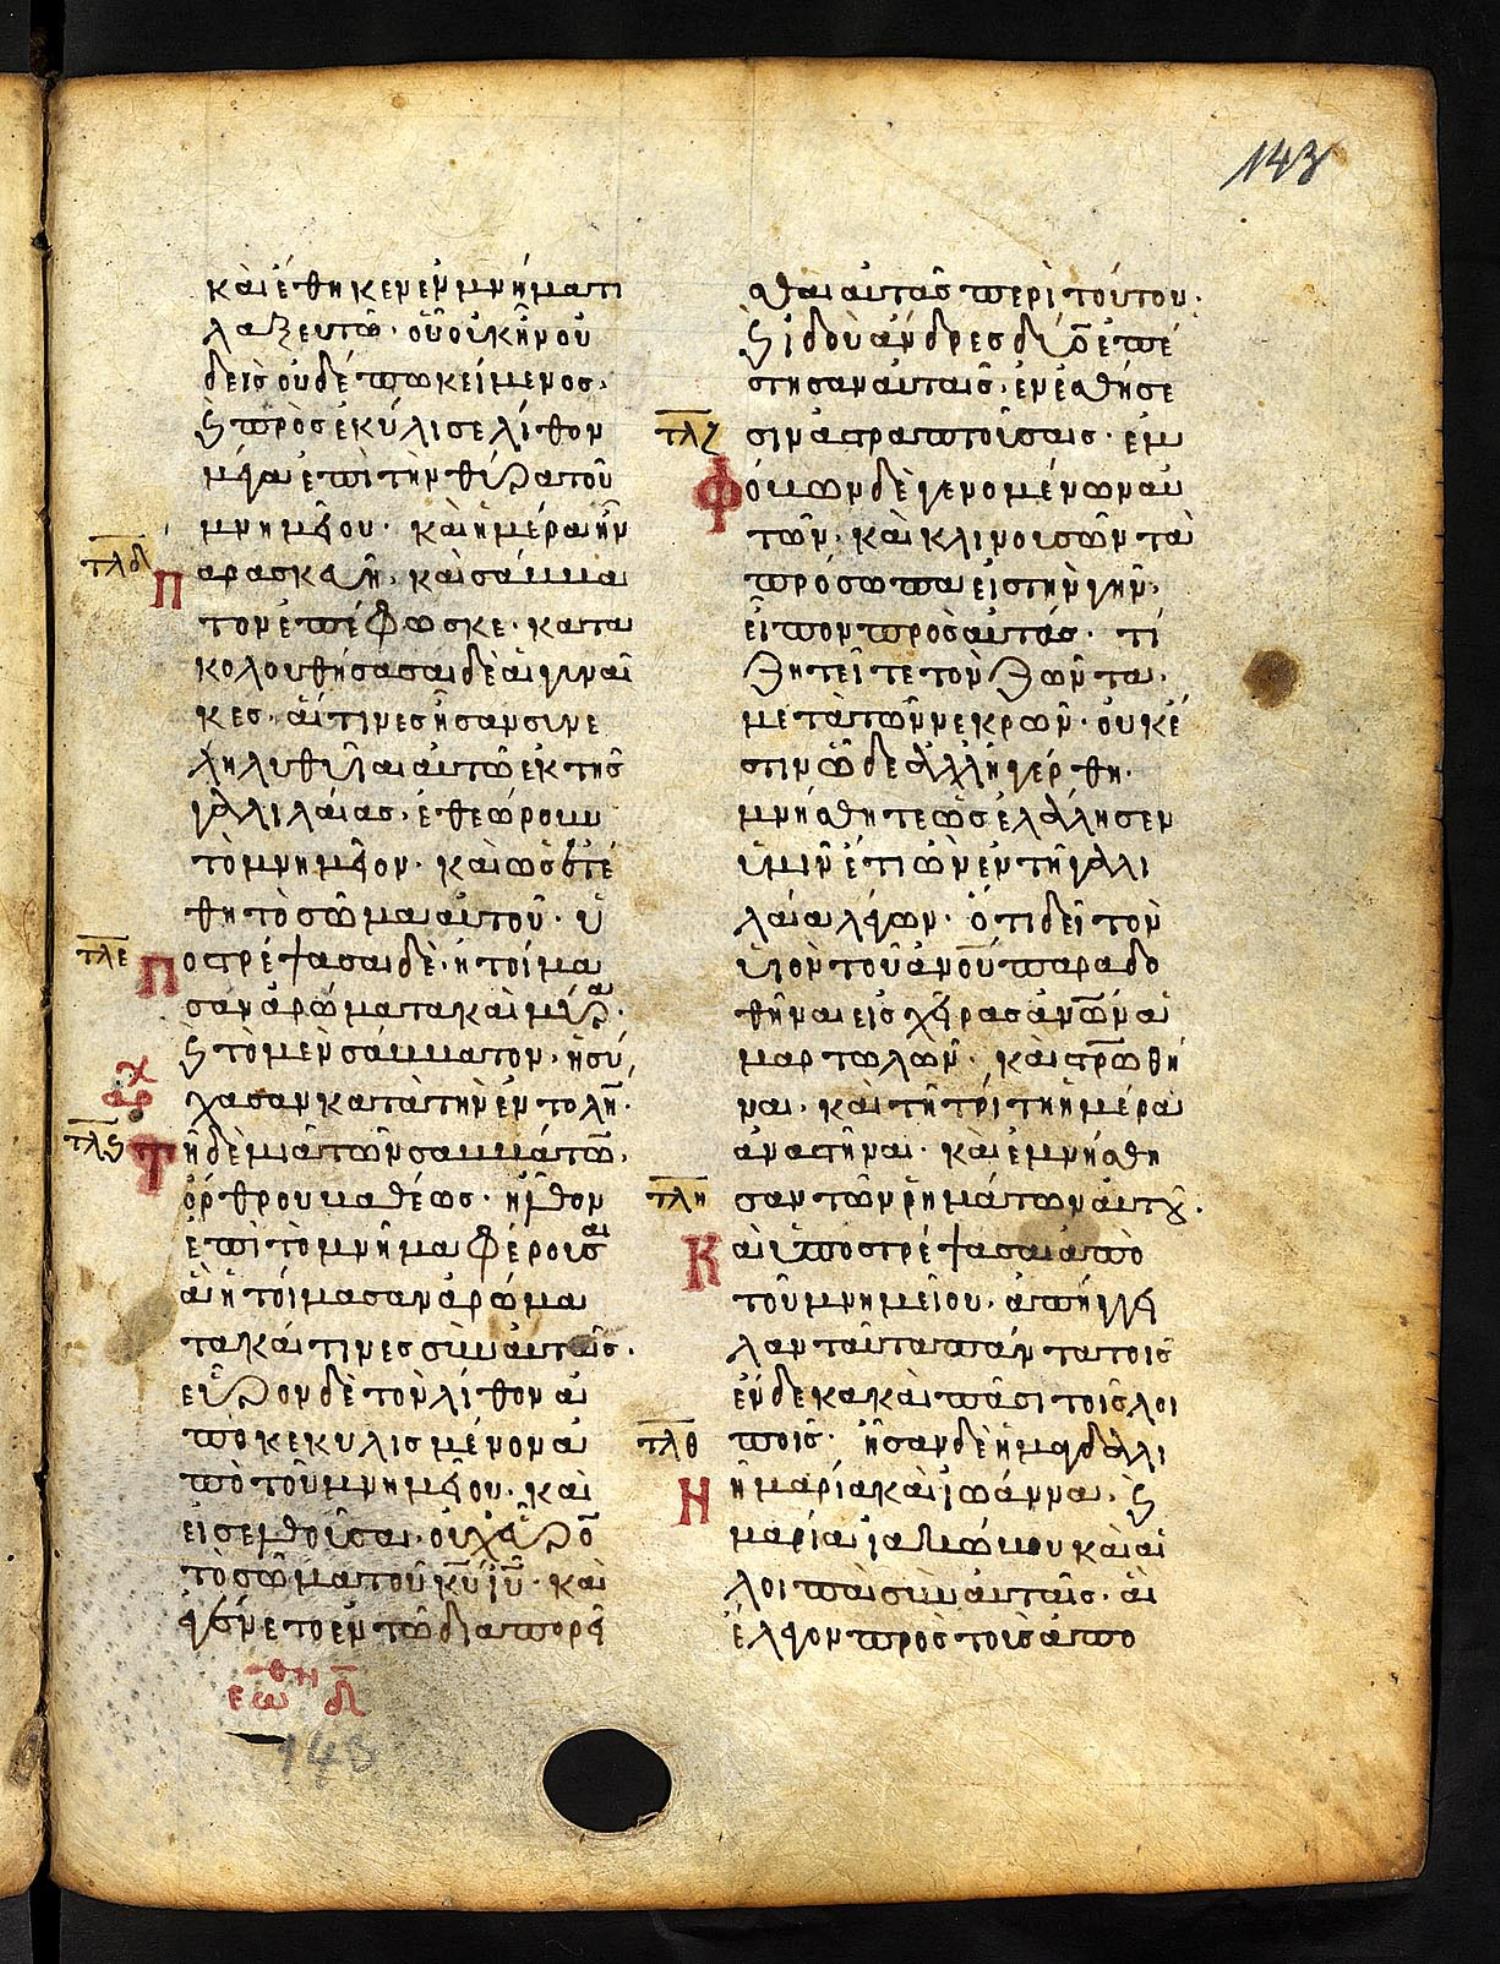 143
καὶ ἔθηκεν ἐν μνήματι
λαξευτῶ· οὗ οὐκ ἦν οὐ
δεὶς οὐδέπω κείμενος·
ϗ προσεκύλισε λίθον
μέγαν ἐπὶ τὴν θύραν τοῦ
μνημείου· καὶ ἡμέρα ἦν
τλδ
παρασκευὴ· καὶ σάββα
τον ἐπέφωσκε· κατα
κολουθήσασαι δὲ αἱ γυναῖ
κες· αἵτινες ἦσαν συνε
ληλυθυῖαι αὐτῶ ἐκ τῆς
γαλιλαίας· ἐθεώρουν
τὸ μνημεῖον· καὶ ὡς ἐτέ
θη τὸ σῶμα αὐτοῦ· ὑ
τλε
Ποστρέψασαι δὲ· ἡτοίμα
σαν ἀρώματα καὶ μύρα·
ϗ τὸ μὲν σάββατον· ἡσύ
χασαν κατὰ τὴν ἐντολήν·
αρχ
τλϛ
Τῆ δὲ μιᾶ τῶν σαββάτω̄·
ὄρθρου βαθέως· ἦλθον
ἐπὶ τὸ μνῆμα φέρουσαι
ἃ ἡτοίμασαν ἀρώμα
τα καί τινες σὺν αὐταῖς·
εὗρον δὲ τὸν λίθον ἀ
ποκεκυλισμένον ἀ
πὸ τοῦ μνημείου· καὶ
εἰσελθοῦσαι· οὐχ εὗρο̄
τὸ σῶμα τοῦ κ̄υ ἰ̄υ· καὶ
ἐγένετο ἐν τῶ διαπορεῖ
εωθη δ̄
143
σθαι αὐτὰς περὶ τούτου·
ϗ ἰδοὺ ἄνδρες δύο ἐπέ
στησαν αὐταῖς· ἐν ἐσθήσε
τλζ
σιν ἀστραπτούσαις· ἐμ
Φόβων δὲ γενομένων αὐ
τῶν· καὶ κλινουσῶν τὰ
πρόσωπα εἰς τὴν γῆν·
εἶπον πρὸς αὐτάς· τί
ζητεῖτε τὸν ζῶντα·
μετὰ τῶν νεκρῶν· οὐκ ἔ
στιν ὧδε ἀλλ' ἠγέρθη·
μνήσθητε ὡς ἐλάλησεν
ὑμῖν ἔτι ὢν ἐν τῆ γαλι
λαία λέγων· ὅτι δεῖ τὸν
υἱὸν τοῦ ἀ̄νοῦ παραδο
θῆναι εἰς χεῖρας ἀ̄νων ἁ
μαρτωλῶν· καὶ στ̄ρωθῆ
ναι· καὶ τῆ τρίτη ἡμέρα
ἀναστῆναι· καὶ ἐμνήσθη
τλη
σαν τῶν ῥημάτων αὐτοῦ·
Καὶ ὑποστρέψασαι ἀπὸ
τοῦ μνημείου· ἀπήγγει
λαν ταῦτα πάντα τοῖς
ἕνδεκα καὶ πᾶσι τοῖς λοι
τλθ
ποῖς· ἦσαν δὲ ἡ μαγδαλι
Νὴ μαρία καὶ ἰωάννα· ϗ
μαρία ἰακώβου καὶ αἱ
λοιπαὶ σὺν αὐταῖς· αἳ
ἔλεγον πρὸς τοὺς ἀπο